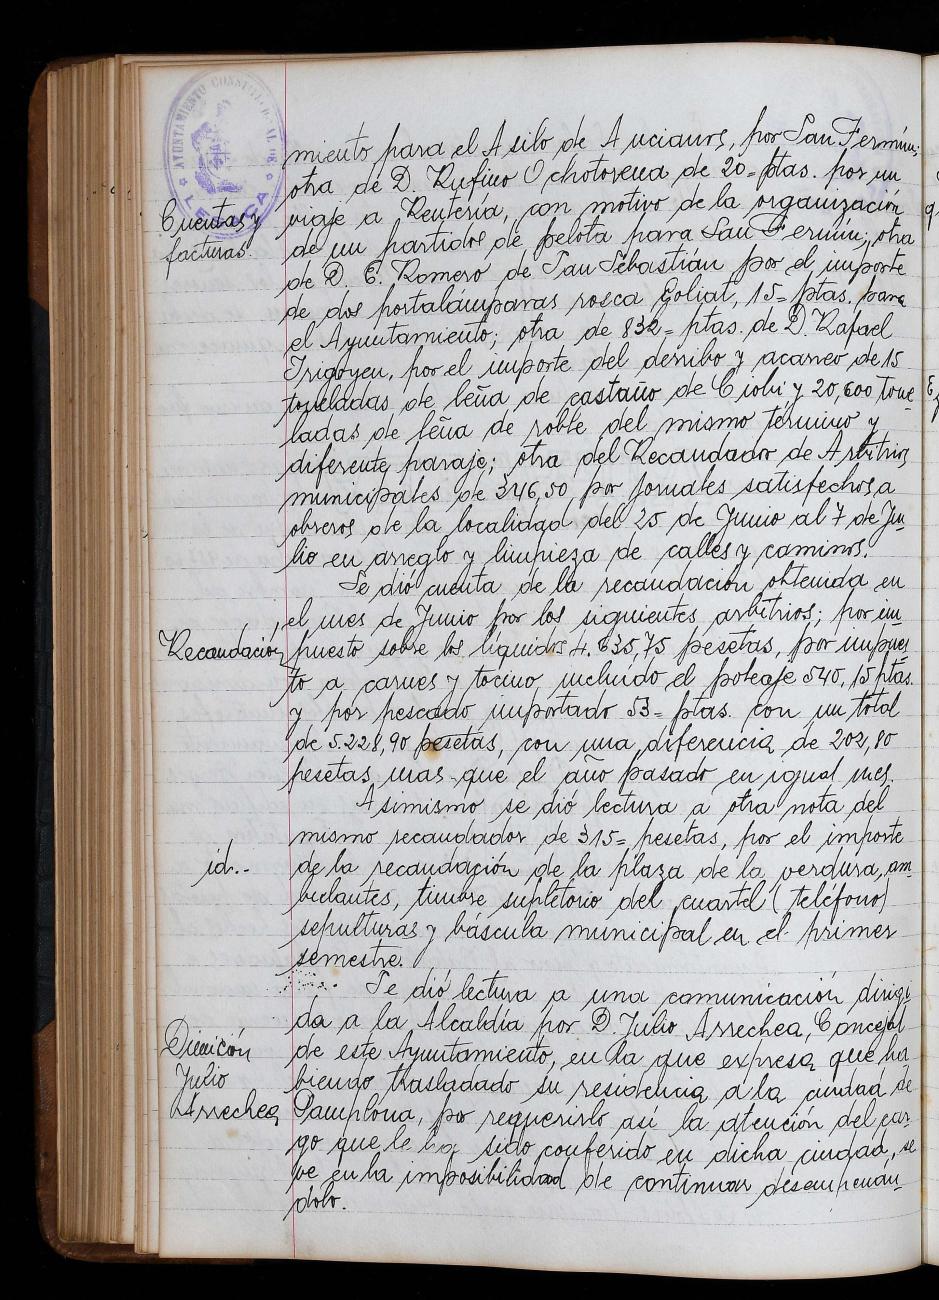 AYUNTAMIENTO CONSTITUCIONAL DE
LESACA
miento para el Asilo de Ancianos, por San Fermín;
otra de D. Rufino Ochotorena de 20= ptas. por un
Cuentas y
facturas.
viaje a Rentería, con motivo de la organización
de un partidos de pelota para San Fermín; otra
de D. E. Romero de San Sebastián por el importe
de dos portalámparas rosca Goliat, 15= ptas. para
el Ayuntamiento; otra de 832= ptas. de D. Rafael
Irigoyen, por el importe del derribo y acarreo de 15
toneladas de leña de castaño de Ciobi y 20,600 tone
ladas de leña de roble del mismo termino y
diferente paraje; otra del Recaudador de Arbitrios
municipales de 346,50 por jornales satisfechos a
obreros de la localidad del 25 de Junio al 7 de Ju-
lio en arreglo y limpieza de calles y caminos.
Se dió cuenta de la recaudación obtenida en
el mes de Junio por los siguientes arbitrios; por im
Recaudación
puesto sobre los líquidos 4.635,75 pesetas, por impues
to a carnes y tocino, incluido el poteaje 540,15 ptas.
y por pescado importado 53= ptas. con un total
de 5.228,90 pesetas, con una diferencia de 202,80
pesetas mas que el año pasado en igual mes.
Asimismo se dió lectura a otra nota del
mismo recaudador de 315= pesetas, por el importe
id.-
de la recaudación de la plaza de la verdura, am-
bulantes, timbre supletorio del cuartel (teléfono)
sepulturas y báscula municipal en el primer
semestre.
Se dió lectura a una comunicación dirigi-
da a la Alcaldía por D. Julio Arrechea, Concejal
Dimición
Julio
Arrechea
de este Ayuntamiento, en la que expresa que ha
biendo trasladado su residencia a la ciudad de
Pamplona, por requerirlo así la atención del car-
go que le ha sido conferido en dicha ciudad, se
ve en la imposibilidad de continuar desempeñán-
dolo.